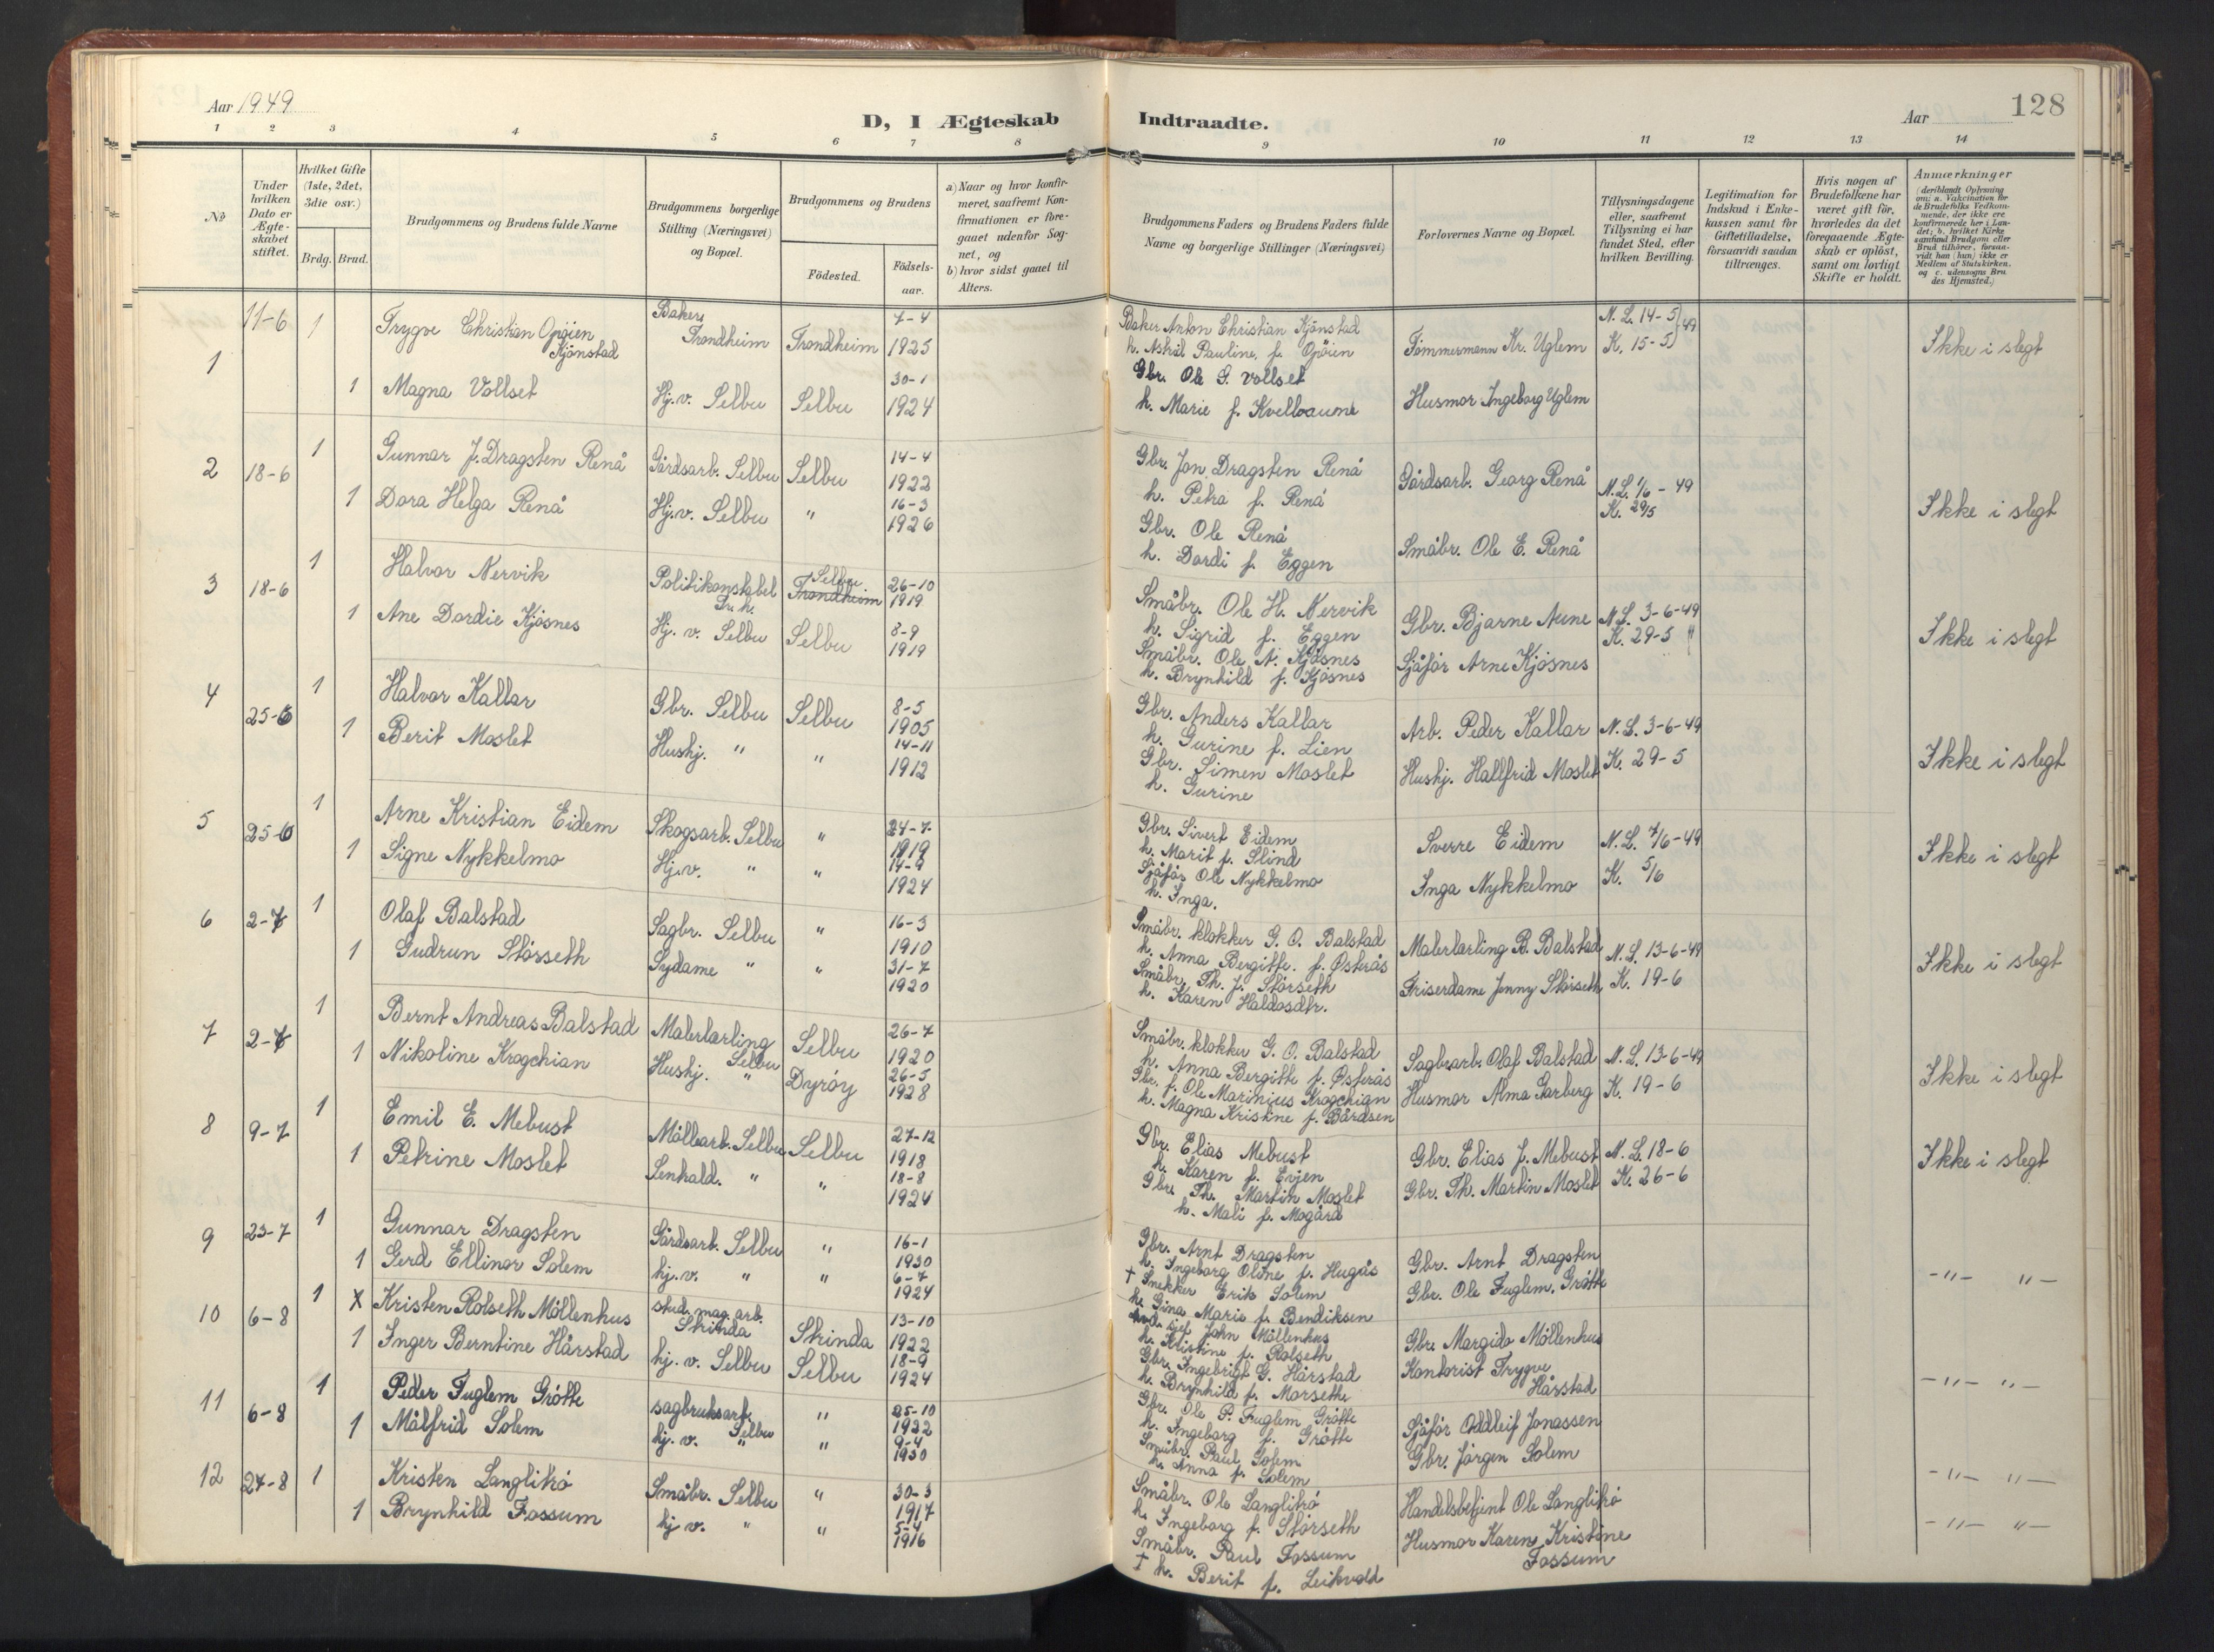 Aar 1949
D, I Ægteskab Indtraadte.
Aar
128
1 2 3 4 5 6 7 8 9 10 11 12 13 14
No
Under hvilken Dato er Ægteskabet stiftet.
Hvilket Gifte (1ste, 2det, 3die osv.)
Brdg. Brud.
Brudgommens og Brudens fulde Navne
Brudgommens borgerlige Stilling (Næringsvei) og Bopæl.
Brudgommens og Brudens
Födested.
Födsels-aar.
a) Naar og hvor konfirmeret, saafremt Konfirmationen er foregaaet udenfor Sognet, og
b) hvor sidst gaaet til Alters.
Brudgommens Faders og Brudens Faders fulde Navne og borgerlige Stillinger (Næringsvei)
Forlovernes Navne og Bopæl.
Tillysningsdagene eller, saafremt Tillysning ei har fundet Sted, efter hvilken Bevilling.
Legitimation for Indskud i Enkekassen samt for Giftetilladelse, forsaavidt saadan tiltrænges.
Hvis nogen af Brudefolkene har været gift för, hvorledes da det foregaaende Ægteskab er oplöst, samt om lovligt Skifte er holdt.
Anmærkninger
(deriblandt Oplysning om: a. Vakcination for de Brudefolks Vedkommende, der ikke ere konfirmerede her i Landet; b. hvilket Kirkesamfund Brudgom eller Brud tilhörer, forsaavidt han (hun) ikke er Medlem af Statskirken, og c. udensogns Brudes Hjemsted.)
1 11-6 1 Trygve Christian Opöien Kjönstad Baker, Trondheim Trondheim 7-4 1925
1 Magna Vollset Hj.v. Selbu Selbu 30-1 1924
Baker Anton Christian Kjönstad
h. Astrid Pauline, f. Opöien
Gbr. Ole G. Vollset
h. Marie f. Kvelloaune
Tömmermann Kr. Uglem
Husmor Ingeborg Uglem
N.L. 14-5 49
K. 15-5
Ikke i slegt
2 18-6 1 Gunnar J. Dragsten Renå Gårdsarb. Selbu Selbu 14-4 1922
1 Dora Helga Renå Hj.v. Selbu " 16-3 1926
Gbr. Jon Dragsten Renå
h. Petra f. Renå
Gbr. Ole Renå
h. Dordi f. Eggen
Gårdsarb. Georg Renå
Småbr. Ole E. Renå
N.L. 1/6 - 49
K. 29/5
Ikke i slegt
3 18-6 1 Halvor Nervik Politikonstabel Tr.h. Selbu Trondheim 26-10 1919
1 Ane Dordie Kjösnes Hj. v. Selbu Selbu 8-9 1919
Småbr. Ole H. Nervik
h. Sigrid f. Eggen
Småbr. Ole N. Kjösnes
h. Brynhild f. Kjösnes
Gbr. Bjarne Aune
Sjåför Arne Kjösnes
N.L. 3-6-49
K. 29-5 "
Ikke i slegt
4 25-6 1 Halvor Kallar Gbr. Selbu Selbu 8-5 1905
1 Berit Moslet Hushj. " " 14-11 1912
Gbr. Anders Kallar
h. Gurine f. Lien
Gbr. Simen Moslet
h. Gurine
Arb. Peder Kallar
Hushj. Hallfrid Moslet
N.L. 3-6-49
K. 29-5
Ikke i slegt
5 25-6 1 Arne Kristian Eidem Skogsarb. Selbu " 24-7 1919
1 Signe Nykkelmo Hj.v. " " 14-9 1924
Gbr. Sivert Eidem
h. Marit f. Slind
Sjåför Ole Nykkelmo
h. Inga.
Sverre Eidem
Inga Nykkelmo
N.L. 7/6-49
K. 5/6
Ikke i slegt
6 2-7 1 Olaf Balstad Sagbr. Selbu " 16-3 1910
1 Gudrun Störseth Sydame " " 31-7 1920
Småbr. klokker G. O. Balstad
h. Anna Bergitte. f. Østerås
Småbr. Th. J. Störseth
h. Karen Haldosdtr.
Malerlærling B. Balstad
Friserdame Jenny Störseth
N.L. 13-6-49
K. 19-6
Ikke i slegt
7 2-7 1 Bernt Andreas Balstad Malerlærling Selbu Selbu 26-7 1920
1 Nikoline Krogchian Hushj. " Dyröy 26-5 1928
Småbr. klokker G. O. Balstad
h. Anna Bergitte f. Østerås
Gbr. f. Ole Marinius Krogchian
h. Magna Kristine f. Bårdsen
Sagbrarb. Olaf Balstad
Husmor Alma Garberg
N.L. 13-6-49
K. 19-6
Ikke i slegt
8 9-7 1 Emil E. Mebust Möllearb. Selbu Selbu 27-12 1918
1 Petrine Moslet Senhald. " " 18-8 1924
Gbr. Elias Mebust
h. Karen f. Evjen
Gbr. Th. Martin Moslet
h. Mali f. Mogård
Gbr. Elias J. Mebust
Gbr. Th. Martin Moslet
N.L. 18-6
K. 26-6
Ikke i slegt
9 23-7 1 Gunnar Dragsten Gårdsarb. Selbu " 16-1 1930
1 Gerd Ellinor Solem hj.v. " " 6-7 1924
Gbr. Arnt Dragsten
h. Ingeborg Oline f. Hugås
† Snekker Erik Solem
h. Gina Marie f. Bendiksen
Gbr. Arnt Dragsten
Gbr. Ole Fuglem, Grötte
-"- "-
10 6-8 1 X Kristen Rolseth Möllenhus stud. mag. art. Strinda Strinda 13-10 1922
1 Inger Berntine Hårstad hj. v. Selbu Selbu 18-9 1924
John Möllenhus
h. Kristine f. Rolseth
Gbr. Ingebrigt G. Hårstad
h. Brynhild f. Morseth
Gbr. Margido Möllenhus
Kontorist Trygve Hårstad
-"- "-
11 6-8 1 Peder Fuglem Grötte sagbruksarb. Selbu " 25-10 1922
1 Målfrid Solem hj. v. " " 9-4 1930
Gbr. Ole P. Fuglem Grötte
h. Ingeborg f. Grötte
Småbr. Paul Solem
h. Anna f. Solem
Sjåför Oddleif Jonassen
Gbr. Jörgen Solem
-"- "-
12 27-8 1 Kristen Langlitrö Småbr. Selbu " 30-3 1917
1 Brynhild Fossum hj v. " " 5-4 1916
Småbr. Ole Langlitrö
h. Ingeborg f. Störseth
Småbr. Paul Fossum
† h. Berit f. Leikvold
Handelsbetjent Ole Langlitrö
Husmor Karen Kristine Fossum
-"- "-